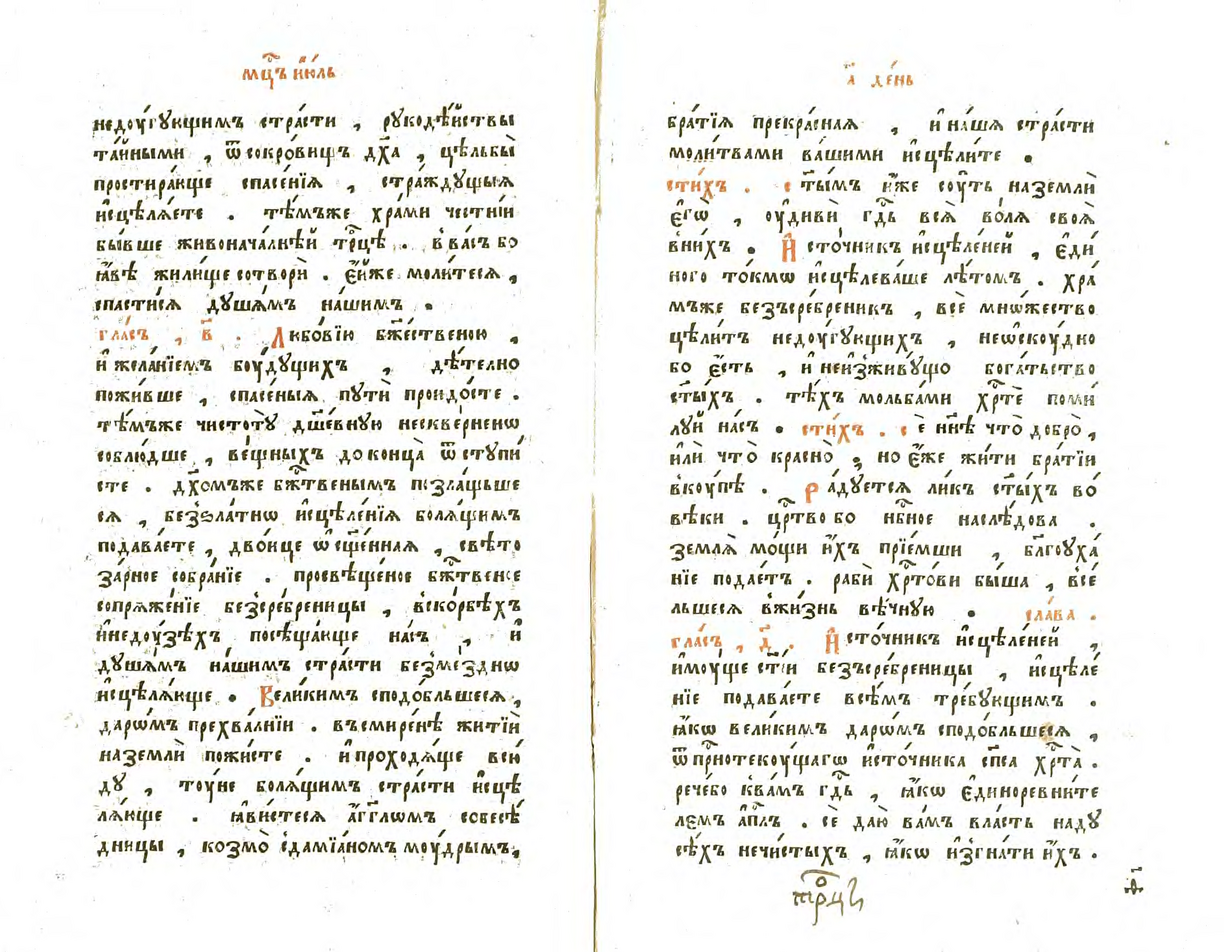 мц҃ъ ию́ль
недоу́гꙋющимъ стра́сти , рꙋкодѣ́йствы
та́йными , ѿ сокро́вищъ дх҃а , цѣльбы̀
простира́юще спасе́нїѧ , стра́ждꙋщыѧ
исцѣлѧ́ете . тѣ́мъже хра́ми честні́и
бы́вше живонача́лнѣй трⷪ҇цѣ . в ва́съ бо
ꙗ́вѣ жили́ще сотворѝ . е́йже моли́тесѧ ,
спасти́сѧ дꙋша́мъ на́шимъ .
гла́съ , в҃ . Любо́вїю бж҃е́ственою ,
и жела́нїемъ боу́дꙋщихъ , дѣ́телно
пожи́вше , спасе́ныѧ пꙋтѝ проидо́сте .
тѣ́мъже чистотꙋ̀ дш҃е́внꙋю нескве́рненѡ
соблю́дше , ве́щныхъ до конца̀ ѿстꙋпи́
сте . дх҃омъже бжⷭ҇твенымъ позлаще́ше
сѧ , безꙁла́тнѡ исцѣле́нїѧ болѧ́щимъ
подава́ете , двои́це ѡсщ҃е́ннаѧ , свѣто
за́рное собра́нїе . просвѣще́ное бжⷭ҇твенⷪе
сопрѧже́нїе безсре́бреницы , в ско́рбѣхъ
и недоу́зѣхъ посѣща́юще на́съ , и
дꙋша́мъ на́шимъ стра́сти безме́зднѡ
исцѣлѧ́юще . Вели́кимъ сподо́бльшесѧ ,
даро́мъ прехва́лнїи . въ смире́нѣ житїѝ
на землѝ пожи́сте . и проходѧ́ще всю́
дꙋ , тоу́не болѧ́щимъ стра́сти исцѣ
лѧ́юще . ꙗви́стесѧ а́гг҃лѡмъ собесѣ́
дницы , козмо̀ с дамїа́номъ моу́дрымъ ,
а҃ де́нь
бра́тїѧ прекра́снаѧ , и на́шѧ стра́сти
моли́твами ва́шими исцѣли́те .
сти́хъ . ст҃ы́мъ и́же соу́ть на землѝ
его̀ , оу҆дивѝ гд҃ь всѧ̀ во́лѧ своѧ̀
в ни́хъ . Исто́чникъ исцѣле́ней , еди́
ного то́кмѡ исцѣлева́ше лѣ́томъ . хра́
мъже безъсре́бреникъ , всѐ мно́жество
цѣли́тъ недоу́гꙋющихъ , неѡскоу́дно
бо е́сть , и неизживꙋ́що бога́тьство
ст҃ы́хъ . тѣ́хъ мольба́ми хрⷭ҇тѐ поми́
лꙋй на́съ . сти́хъ . се ннѣ̀ что̀ добро̀ ,
и́ли что̀ красно̀ , но е́же жи́ти бра́тїи
вкоу́пѣ . Ра́дꙋетсѧ ли́къ ст҃ы́хъ во́
вѣки . црⷭ҇тво бо нбⷭ҇ное наслѣ́дова .
землѧ̀ мо́щи и́хъ прїе́мши , бл҃гоꙋха́
нїе подае́тъ . рабѝ хрⷭ҇то́ви бы́ша , всѐ
льшесѧ в жи́знь вѣ́чнꙋю . сла́ва .
гла́съ , д҃ . Исто́чникъ исцѣле́ней ,
имоу́ще ст҃і́и безъсре́бреницы , исцѣле́
нїе подава́ете всѣ́мъ тре́бꙋющимъ .
ꙗ́кѡ вели́кимъ даро́мъ сподо́бльшесѧ ,
ѿ прⷭ҇нотекоу́щагѡ исто́чника сп҃са хрⷭ҇та̀ .
рече́бо к ва́мъ гд҃ь , ꙗ́кѡ единоревни́те
лемъ ап҃лъ . сѐ даю̀ ва́мъ вла́сть на дꙋ
сѣ́хъ нечи́стыхъ , ꙗ́кѡ изгна́ти и́хъ .